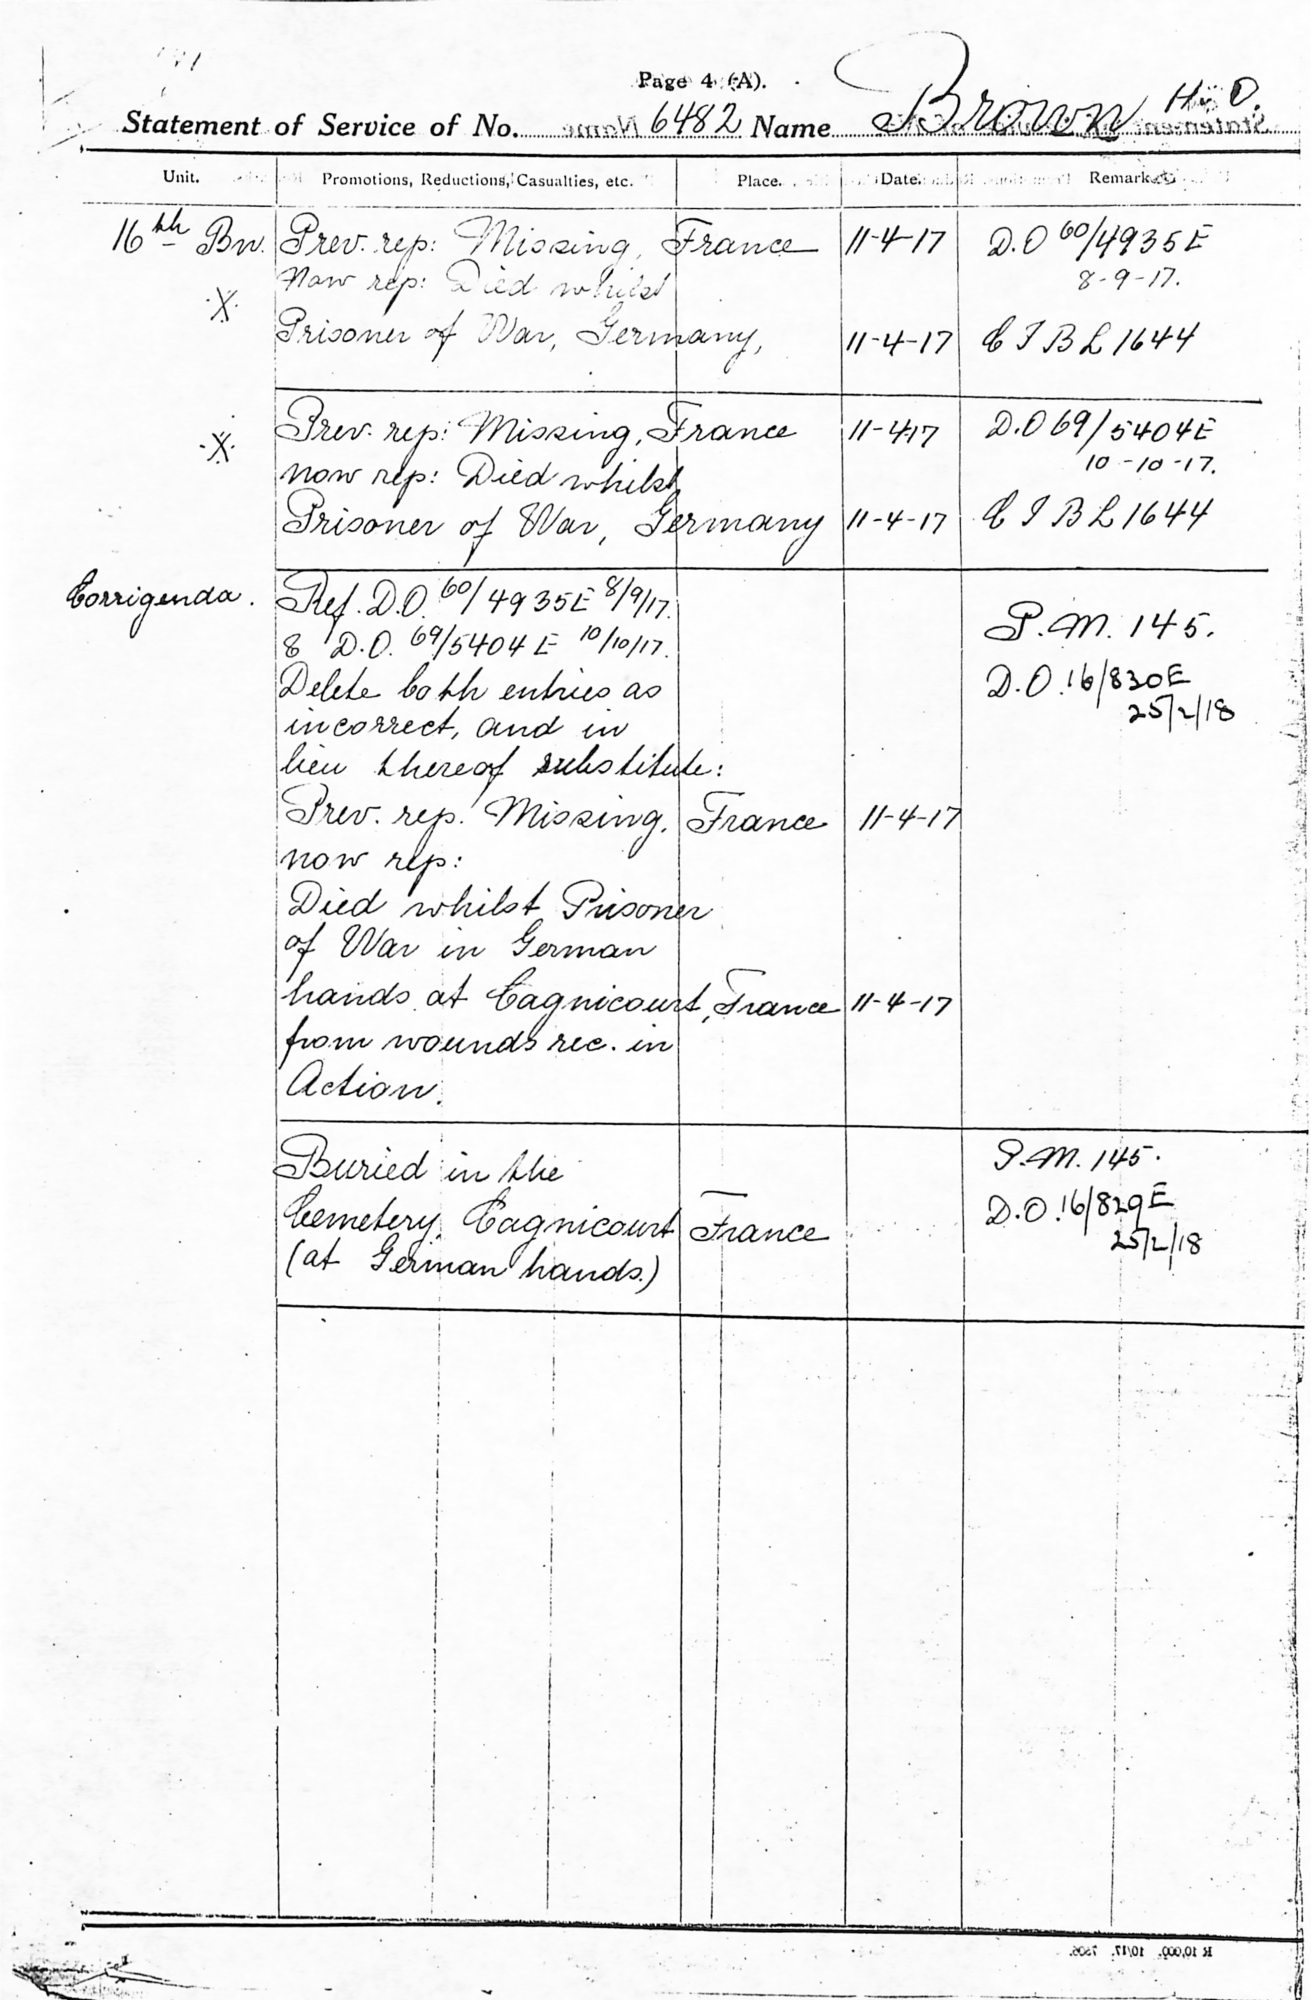 Page 4 (A).
Statement of Service of No. 6482 Name Brown H. O.
Unit. Promotions, Reductions, Casualties, etc. Place. Date. Remarks
16th Bn. Prev. rep: Missing, France 11-4-17 D.O 60/4935E
Now rep: Died whilst 8-9-17.
X
Prisoner of War, Germany, 11-4-17 C I B L 1644
X Prev. rep: Missing, France 11-4-17 D.O 69/5404E
now rep: Died whilst 10-10-17.
Prisoner of War, Germany 11-4-17 C I B L 1644
Corrigenda. Ref. D.O. 60/4935E 8/9/17.
& D.O. 69/5404E 10/10/17. P.M. 145.
Delete both entries as D.O. 16/830E
incorrect, and in 25/2/18
lieu thereof substitute:
Prev. rep. Missing, France 11-4-17
now rep:
Died whilst Prisoner
of War in German
hands at Cagnicourt, France 11-4-17
from wounds rec. in
Action.
Buried in the P.M. 145.
Cemetery, Cagnicourt France D.O. 16/829E
(at German hands.) 25/2/18
R 10,000. 10/17. 7606.